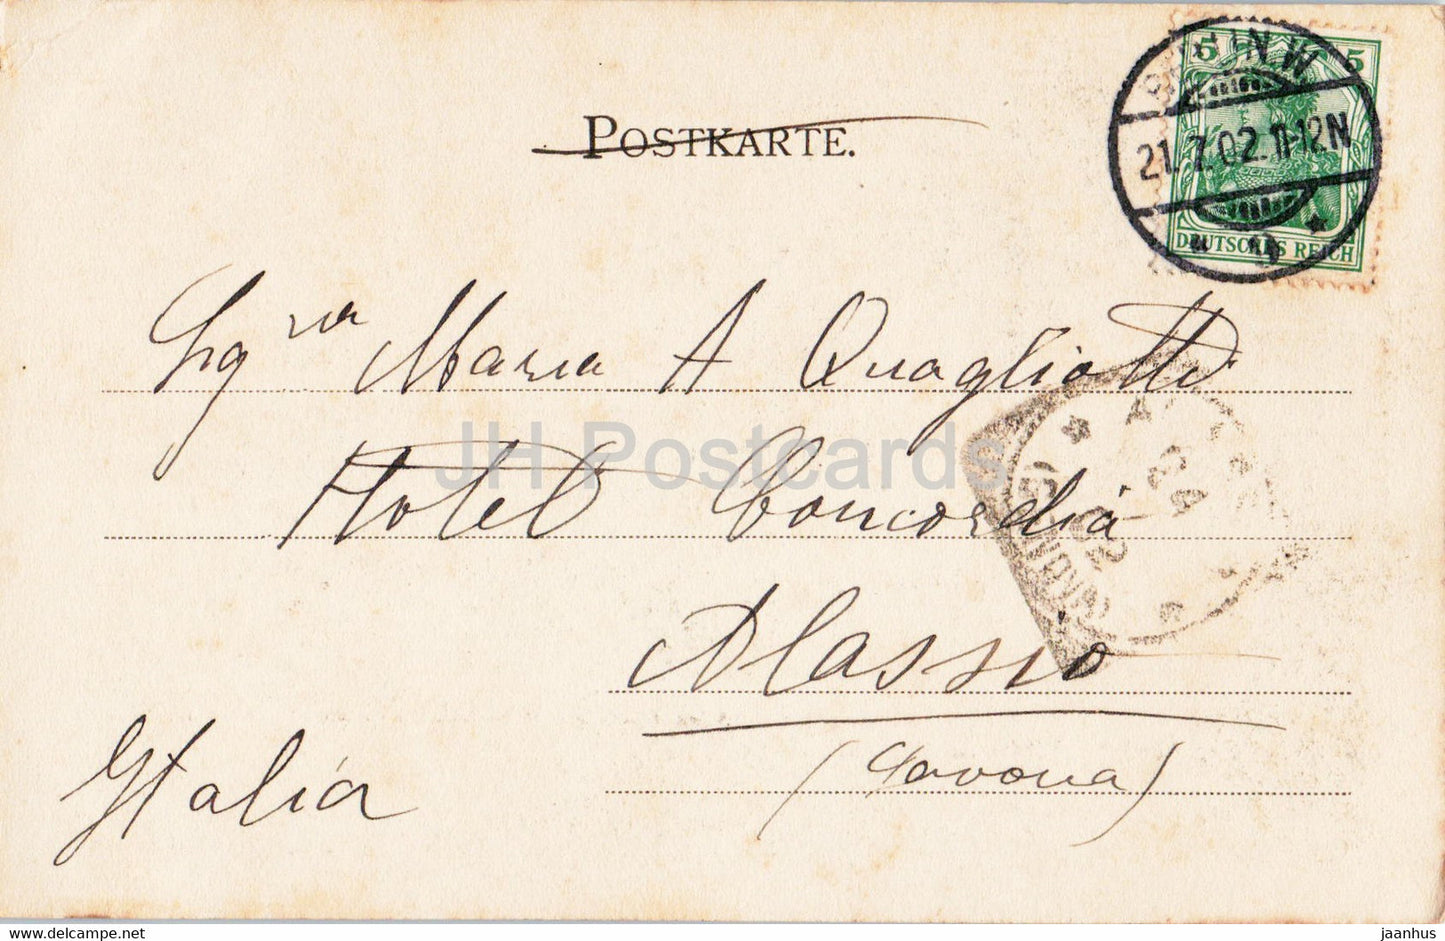 POSTKARTE.
5 5
BERLIN W
21.7.02.11-12N
DEUTSCHES REICH
Sgra Maria A Quagliotti
Hotel Concordia
Alassio
(Savona)
Italia
JH Postcards
www.delcampe.net
jaanhus